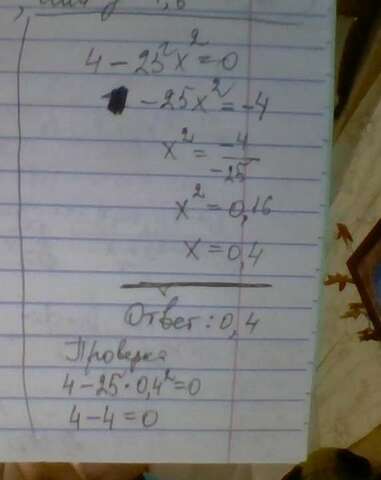 4 - 25x² = 0
-25x² = -4
x² = -4/-25
x² = 0,16
x = 0,4
Ответ: 0,4
Проверка
4 - 25 · 0,4² = 0
4 - 4 = 0